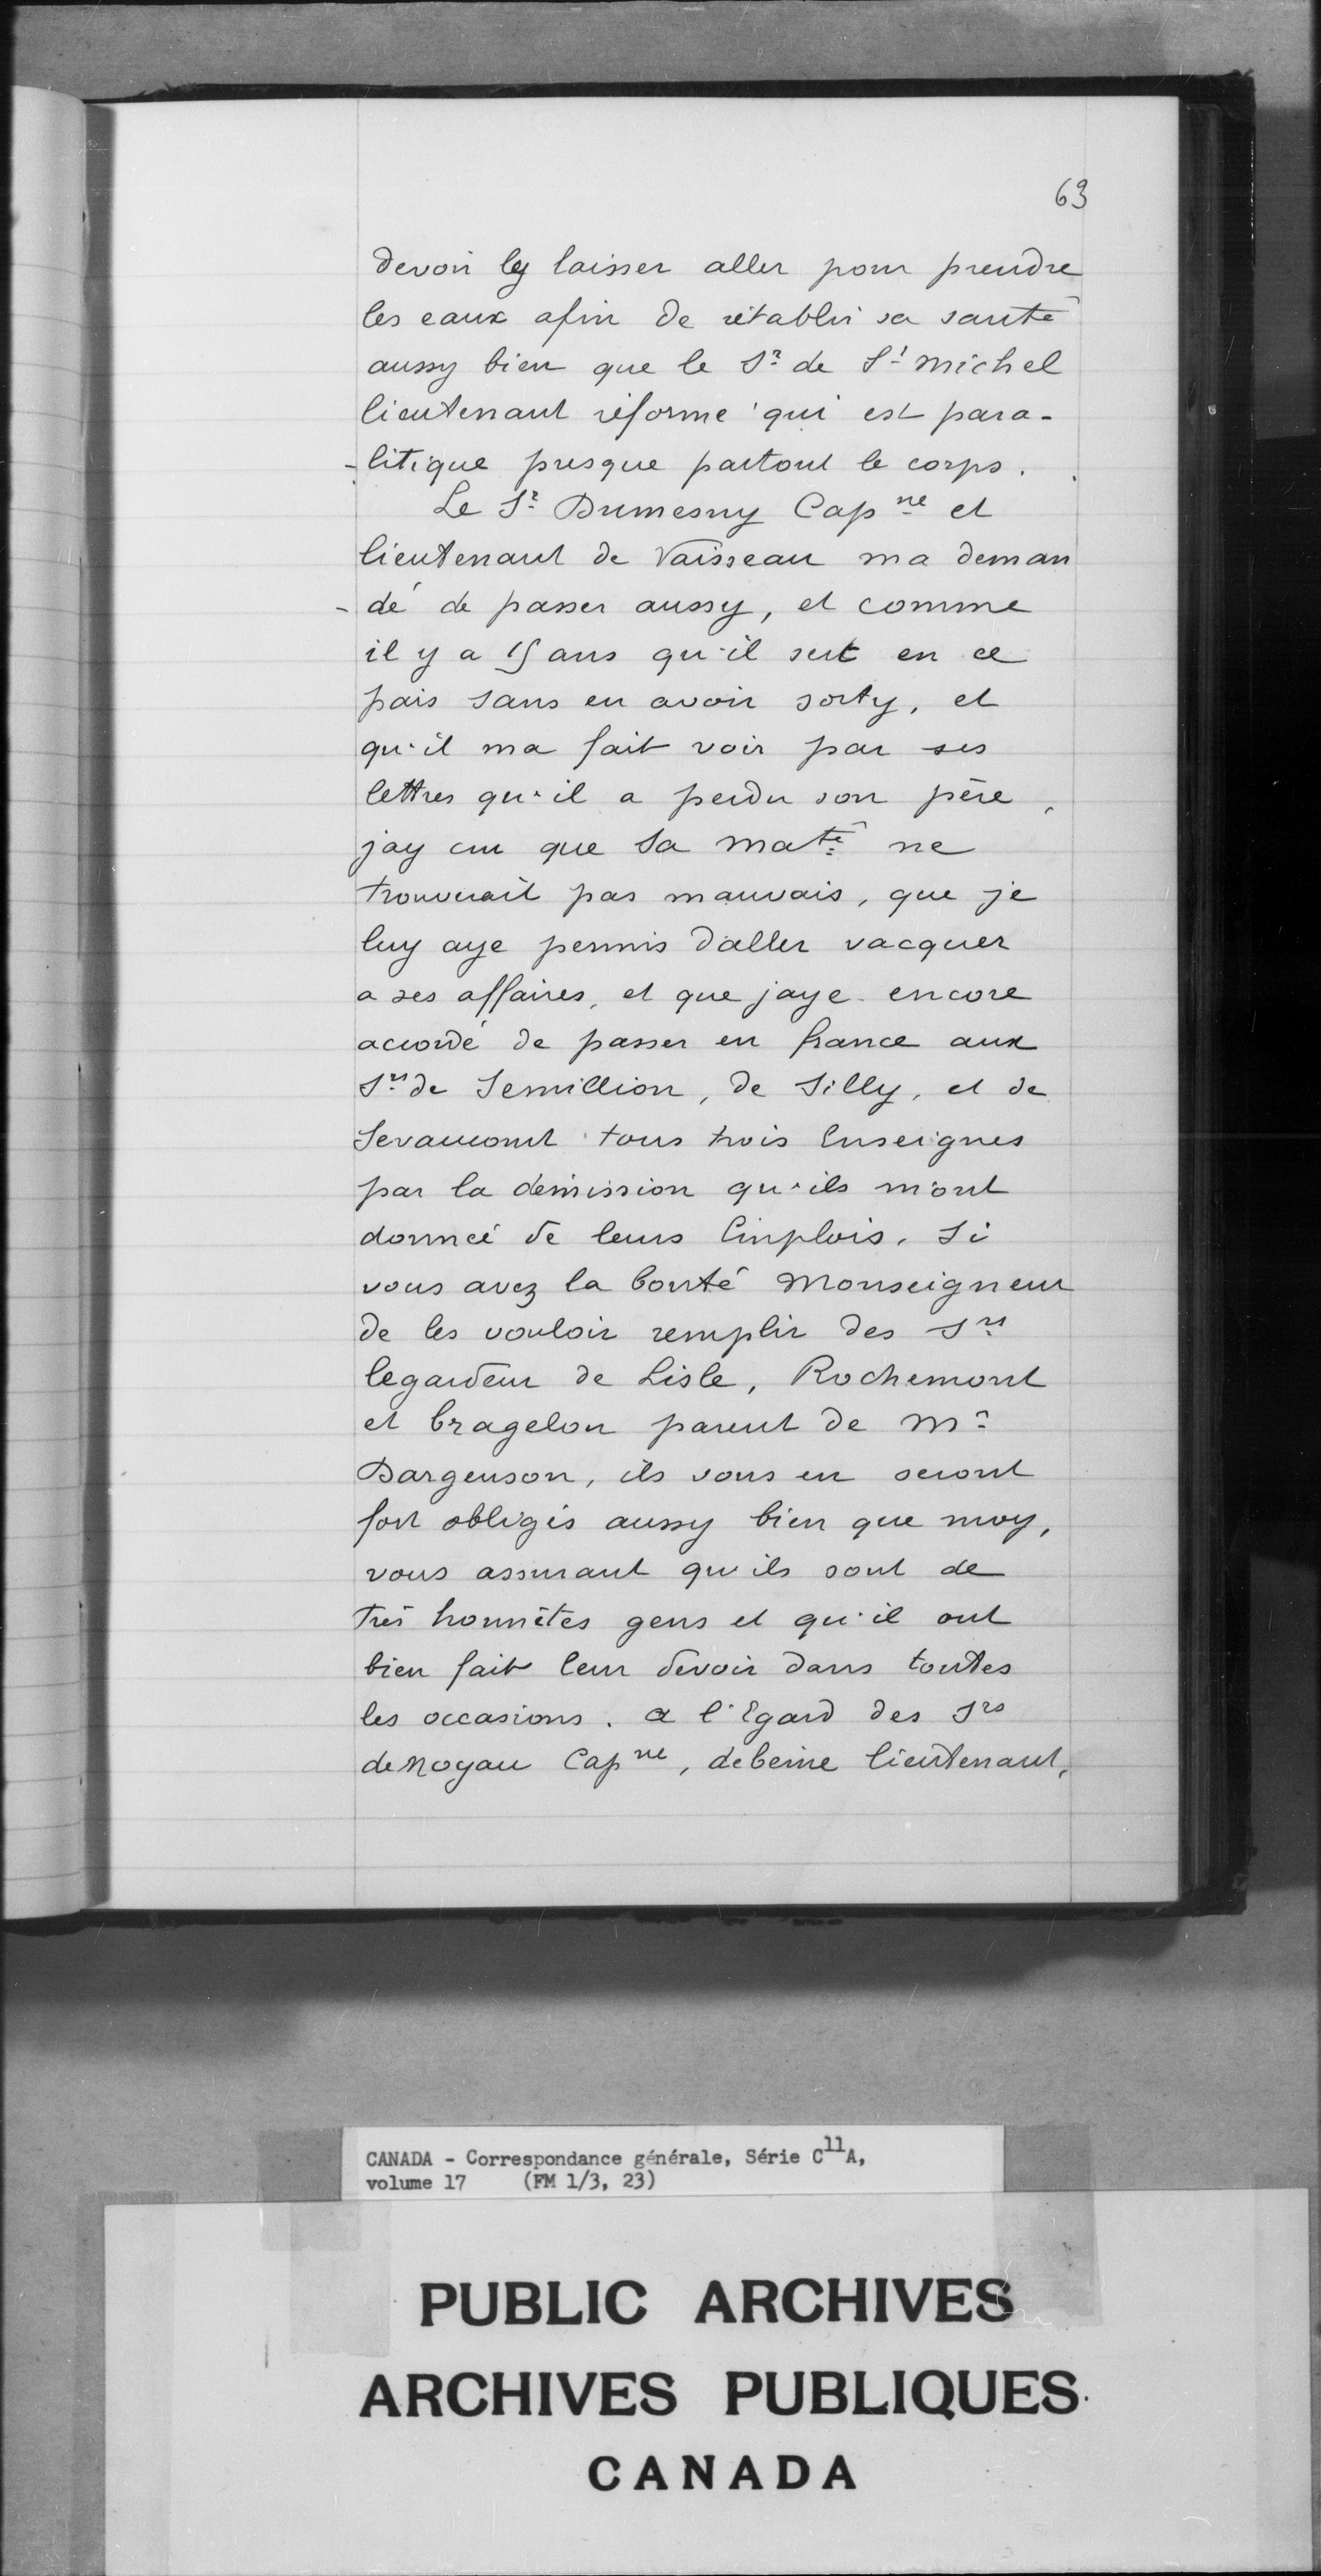 63
devoir ly laisser aller pour prendre
les eaux afin de rétablir sa santé
aussy bien que le Sr de St Michel
lieutenant réformé qui est para-
-litique presque partout le corps.
Le Sr Dumesny Capne et
lieutenant de Vaisseau ma deman
-dé de passer aussy, et comme
il y a 15 ans qu'il sert en ce
pais sans en avoir sorty, et
qu'il ma fait voir par ses
lettres qu'il a perdu son père,
jay cru que Sa Maté ne
trouverait pas mauvais, que je
luy aye permis d'aller vacquer
a ses affaires, et que jaye encore
accordé de passer en france aux
Srs de Semillion, de Silly, et de
tous trois Enseignes
par la démission qu'ils m'ont
donnée de leurs Emplois. Si
vous avez la bonté Monseigneur
de les vouloir remplir des Srs
legardeur de Lisle, Rochemont
et bragelon parent de Mr
Dargenson, ils vous en seront
fort obligés aussy bien que moy,
vous assurant qu'ils sont de
très honnêtes gens et qu'il ont
bien fait leur devoir dans toutes
les occasions. a l'Egard des Srs
de Noyau Capne, lieutenant,
CANADA - Correspondance générale, Série C11A,
volume 17 (FM 1/3, 23)
PUBLIC ARCHIVES
ARCHIVES PUBLIQUES
CANADA